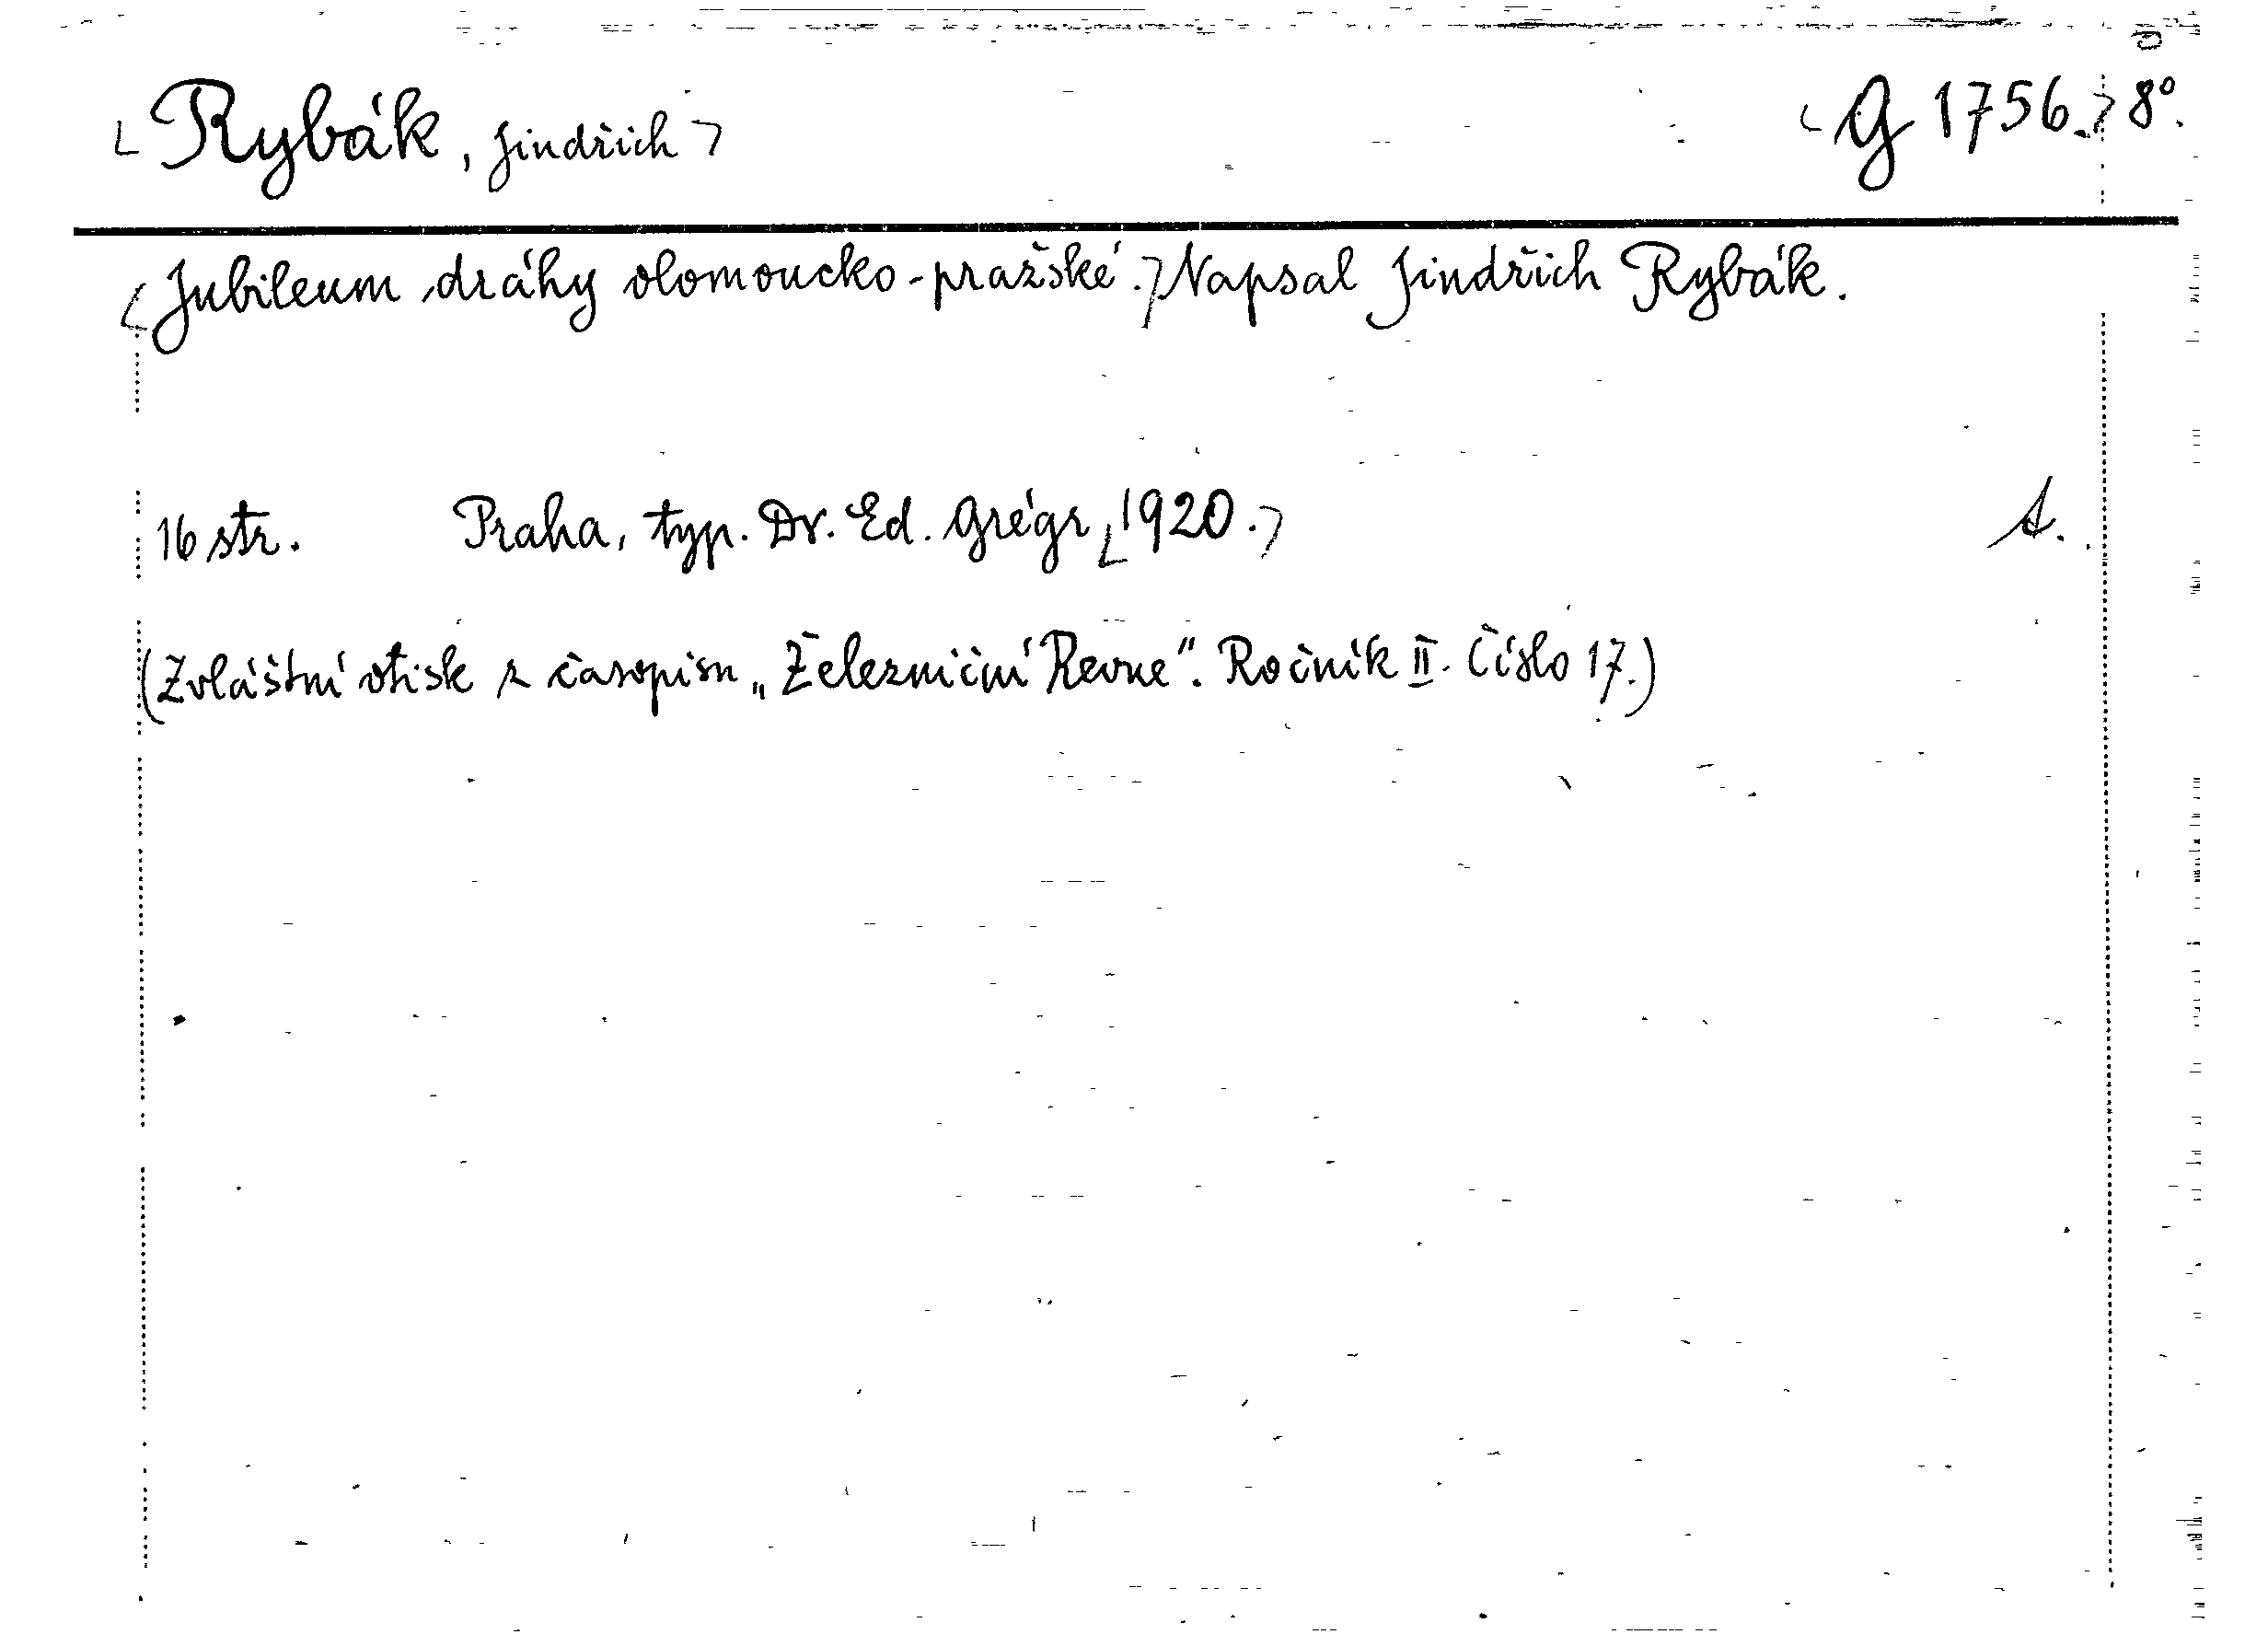 Rybák, Jindřich G 1756. 8°.
Jubileum dráhy olomoucko-pražské. Napsal Jindřich Rybák.
16 str. Praha, typ. Dr. Ed. Grégr 1920. A.
(Zvláštní otisk z časopisu „Železniční Revue". Ročník II. Číslo 17.)